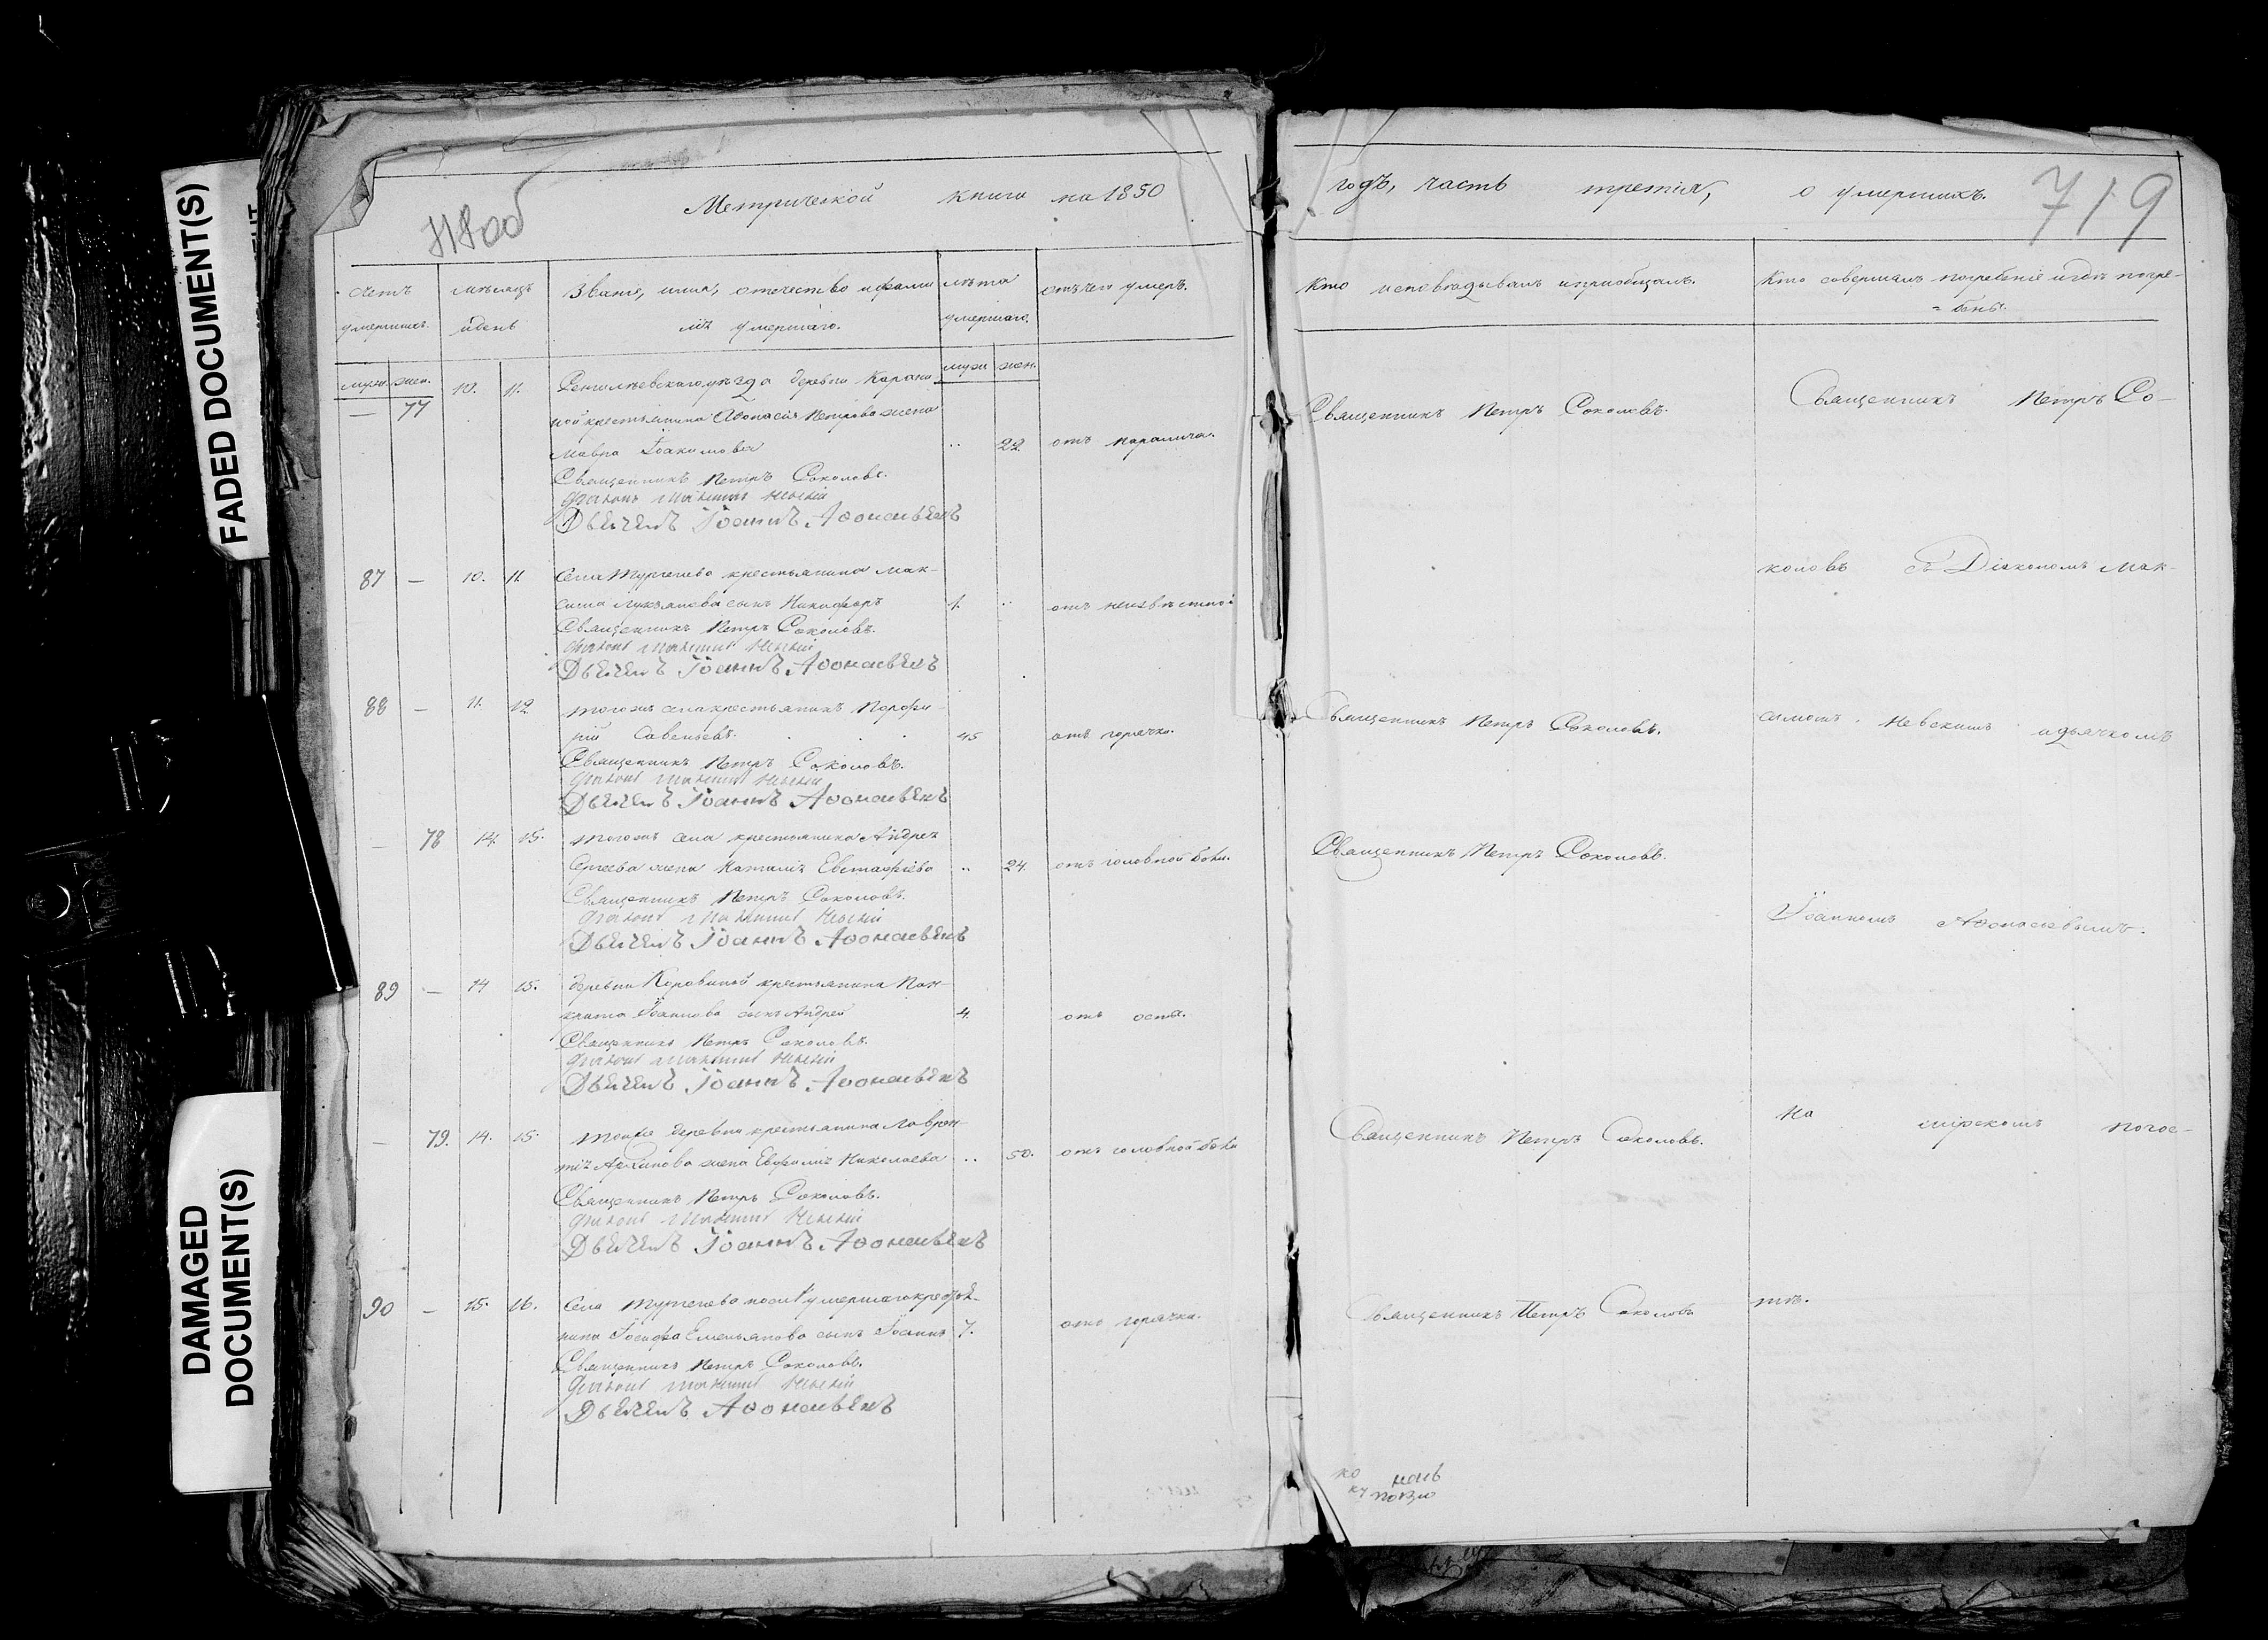 FADED DOCUMENT(S)
DAMAGED DOCUMENT(S)
Метрической книги на 1850
годъ, часть третія, о умершихъ.
719
Счетъ умершихъ.
мѣсяцъ и день
Званіе, имя, отечество и фами
лія умершаго.
лѣта умершаго.
отъ чего умеръ.
Кто исповѣдывалъ и пріобщалъ.
Кто совершалъ погребеніе и гдѣ погре-
= бены.
муж. жен.
муж жен.
— 77 10. 11. деревни
крестьянина Аѳанасія Петрова жена
Мавра Іоакимова .. 22. отъ паралича.
Священникъ Петръ Соколовъ.
Діаконъ Максимъ Невскій
Дьячекъ Іоаннъ Аѳонасьевъ
Священникъ Петръ Соколовъ.
Священникъ Петръ Со-
87 — 10. 11. Села Тургенева крестьянина Мак-
сима Лукьянова сынъ Никифоръ 1. .. отъ неизвѣстной
Священникъ Петръ Соколовъ.
Діаконъ Максимъ Невскій
Дьячекъ Іоаннъ Аѳонасьевъ
коловъ съ Діакономъ Мак-
88 — 11. 12 Тогожъ села крестьянинъ Порфи-
рій Савельевъ. 45 отъ горячки.
Священникъ Петръ Соколовъ.
Діаконъ Максимъ Невскій
Дьячекъ Іоаннъ Аѳонасьевъ
Священникъ Петръ Соколовъ.
симомъ Невскимъ и дьячкомъ
— 78 14. 15. Тогожъ села крестьянина Андрея
Сергеева жена Наталія Евстафіева .. 24. отъ головной боли.
Священникъ Петръ Соколовъ.
Діаконъ Максимъ Невскій
Дьячекъ Іоаннъ Аѳонасьевъ
Священникъ Петръ Соколовъ.
Іоанномъ Аѳонасьевымъ.
89 — 14 15. деревни крестьянина Пан-
крата Іоаннова сынъ Андрей 4. отъ оспы.
Священникъ Петръ Соколовъ.
Діаконъ Максимъ Невскій
Дьячекъ Іоаннъ Аѳонасьевъ
— 79. 14. 15. Тойже деревни крестьянина Лаврен-
тія Архипова жена Евфимія Николаева .. 50. отъ головной боли
Священникъ Петръ Соколовъ.
Діаконъ Максимъ Невскій
Дьячекъ Іоаннъ Аѳонасьевъ
Священникъ Петръ Соколовъ.
На мірскомъ погос-
90 — 15. 16. Села Тургенева послѣ умершаго крестья-
нина Іосифа Емельянова сынъ Іоаннъ 7. отъ горячки.
Священникъ Петръ Соколовъ.
Діаконъ Максимъ Невскій
Дьячекъ Аѳонасьевъ
Священникъ Петръ Соколовъ
тѣ.